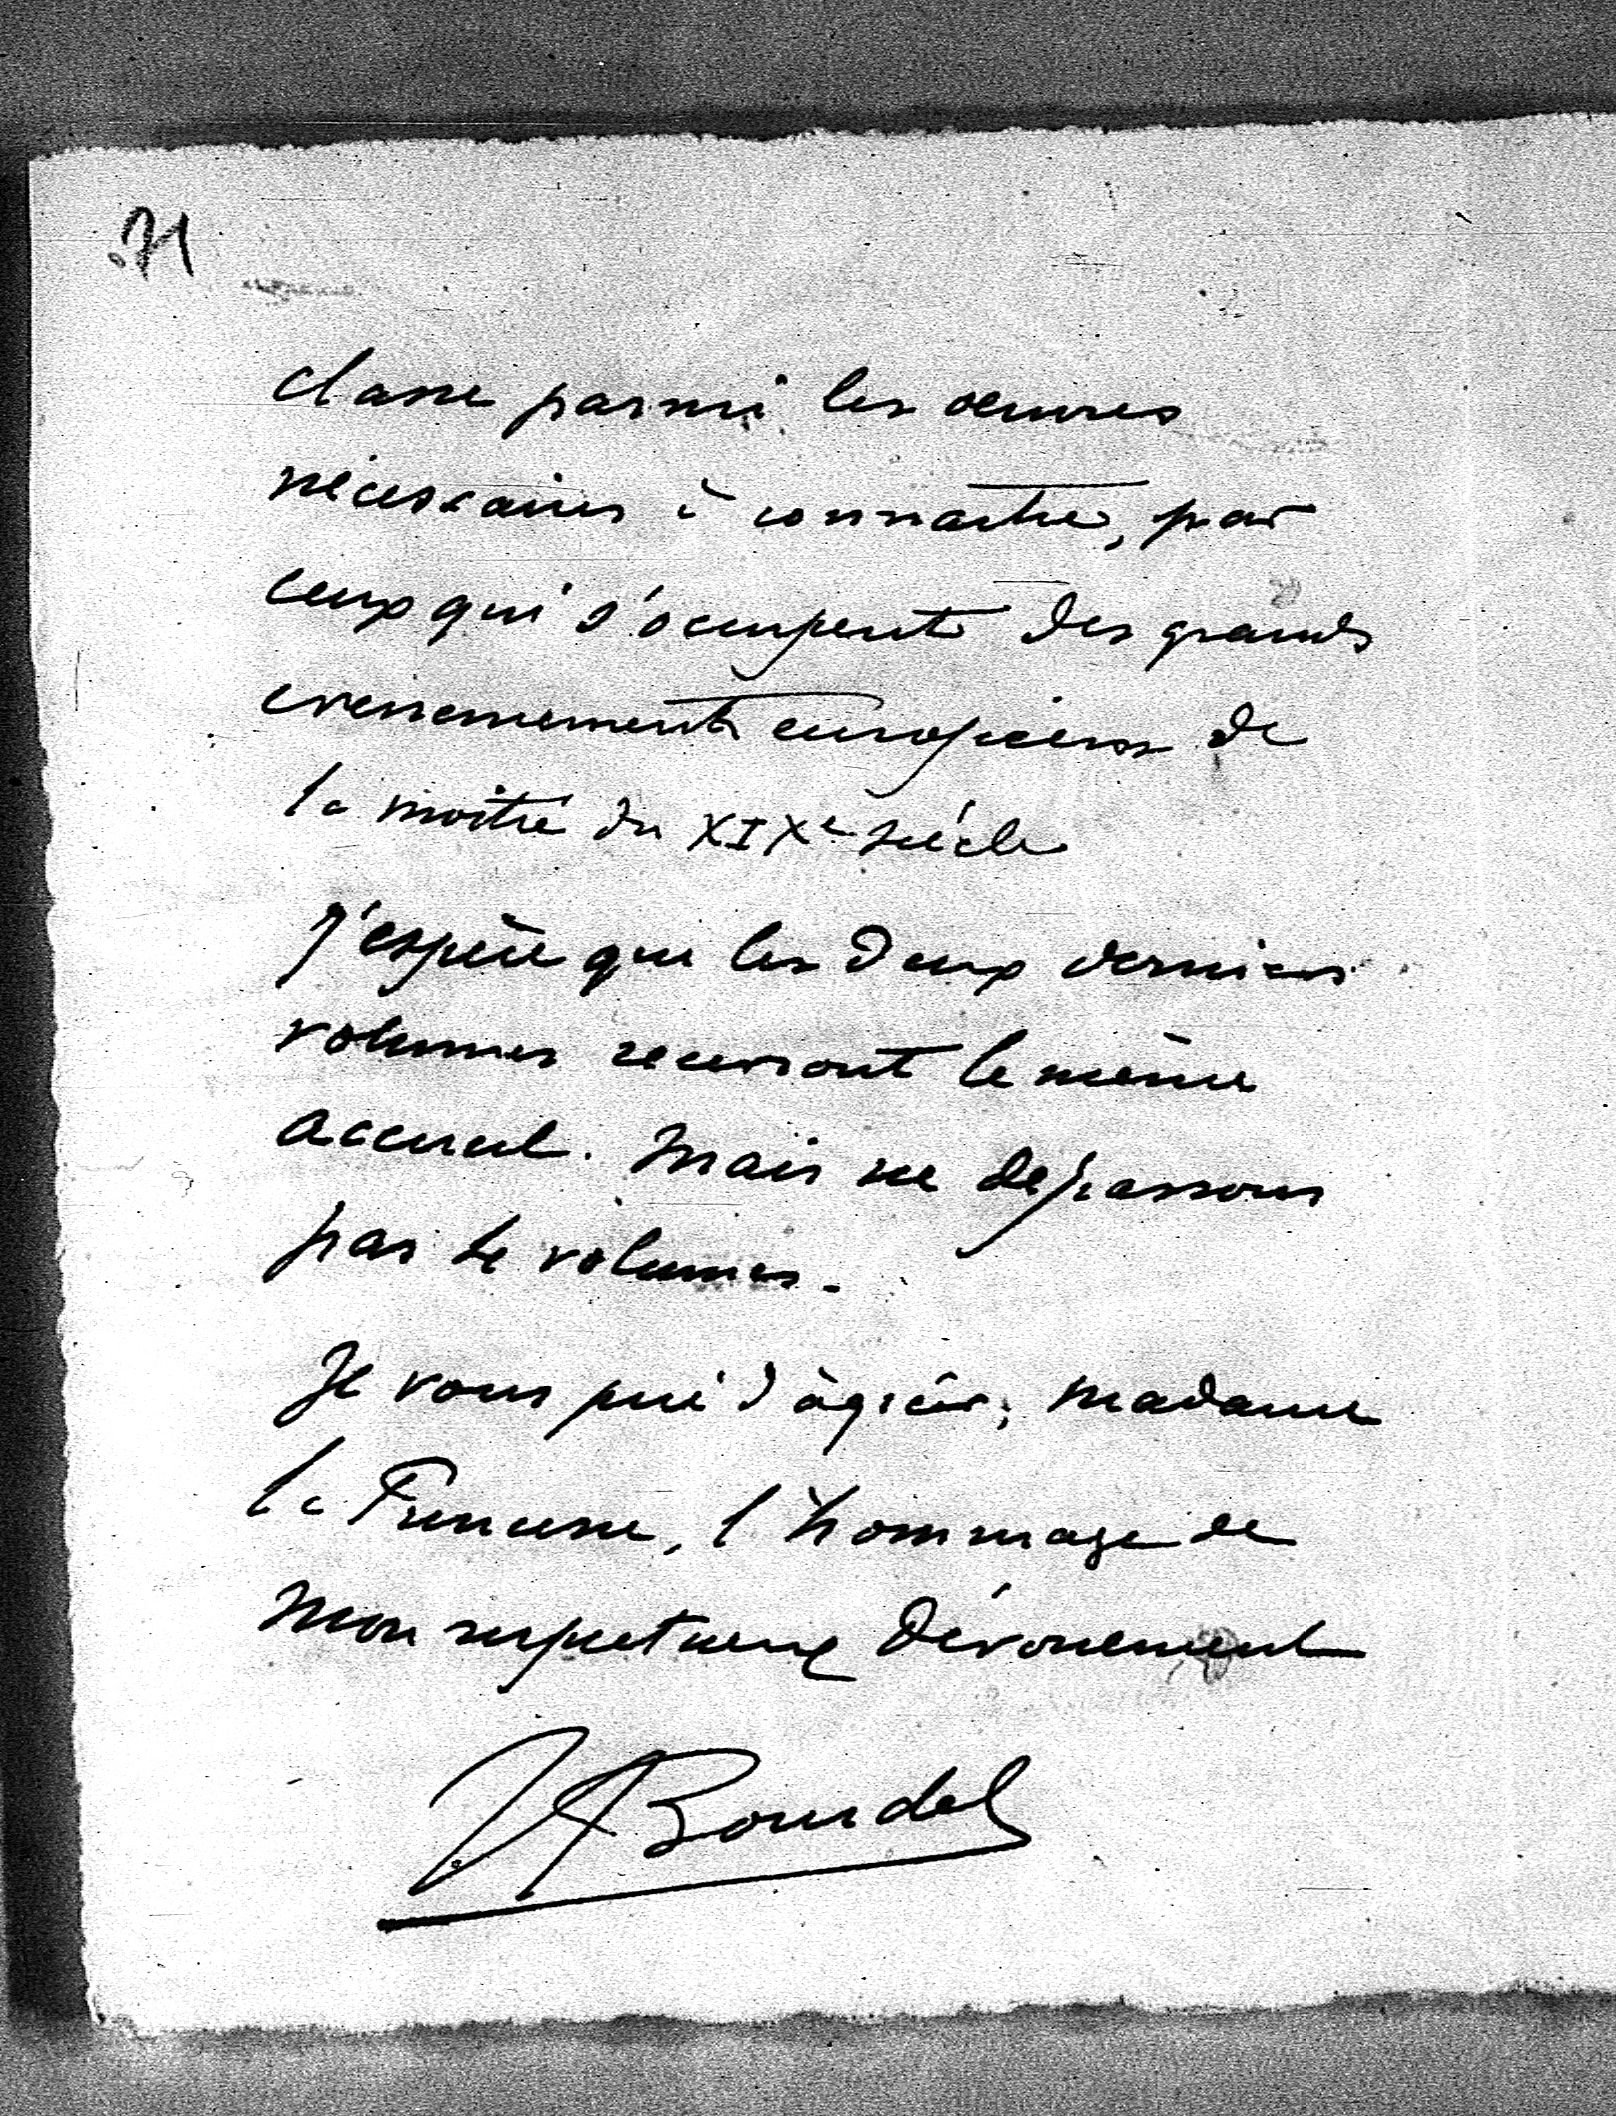 71
classe parmi les oeuvres
nécessaires à connaitre, par
ceux qui s'occupent des grands
evenements européens de
la moitié du XIXe siècle
J'espère que les deux derniers
volumes recevront le même
accueil. Mais ne depassons
pas volumes.
Je vous prie d'agréer, madame
la Princesse, l'hommage de
mon respectueux dévouement
Bourdel